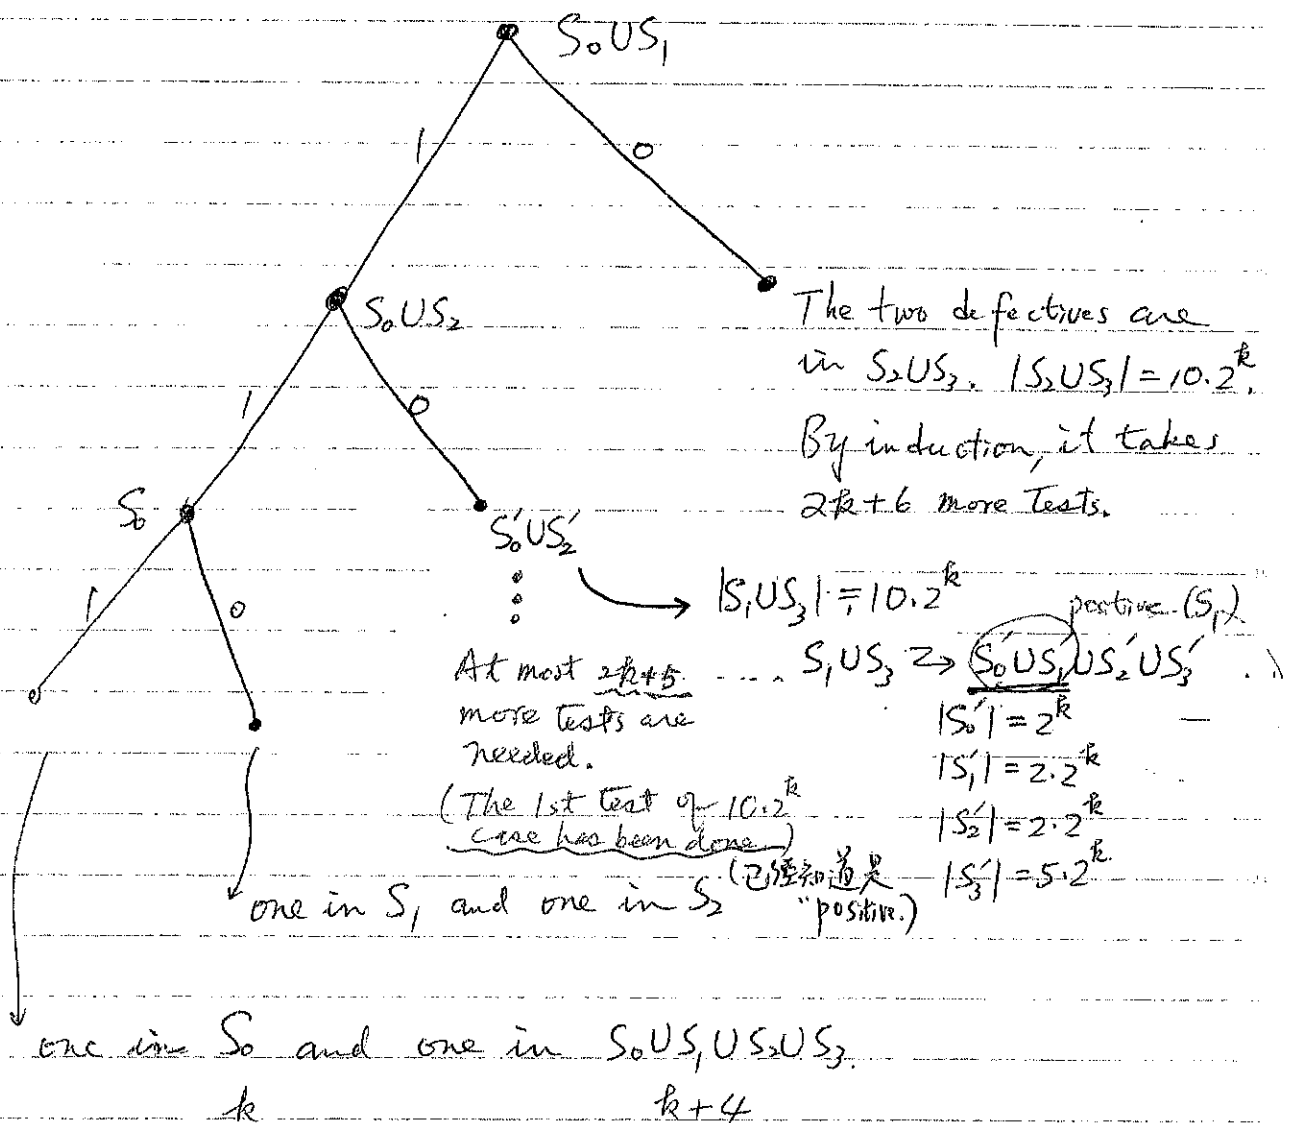 S₀∪S₁
1
0
S₀∪S₂
The two defectives are
in S₂∪S₃. |S₂∪S₃| = 10·2ᵏ.
By induction, it takes
2k+6 more tests.
1
0
S₀
S₀'∪S₂'
1
0
|S₁∪S₃| = 10·2ᵏ
positive (S₁)
At most 2k+5 .... S₁∪S₃ → S₀'∪S₁'∪S₂'∪S₃'
more tests are
needed.
|S₀'| = 2ᵏ
|S₁'| = 2·2ᵏ
(The 1st test of 10·2ᵏ
case has been done)
|S₂'| = 2·2ᵏ
(已經知道是
"positive.)
|S₃'| = 5·2ᵏ
one in S₁ and one in S₂
one in S₀ and one in S₀∪S₁∪S₂∪S₃.
k k+4